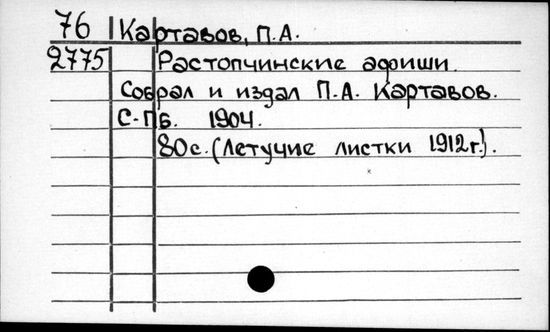 76 Картавов, П.А.
2775 Растопчинские афиши.
Собрал и издал П.А. Картавов.
С-Пб. 1904.
80с. (Летучие листки 1912г.).